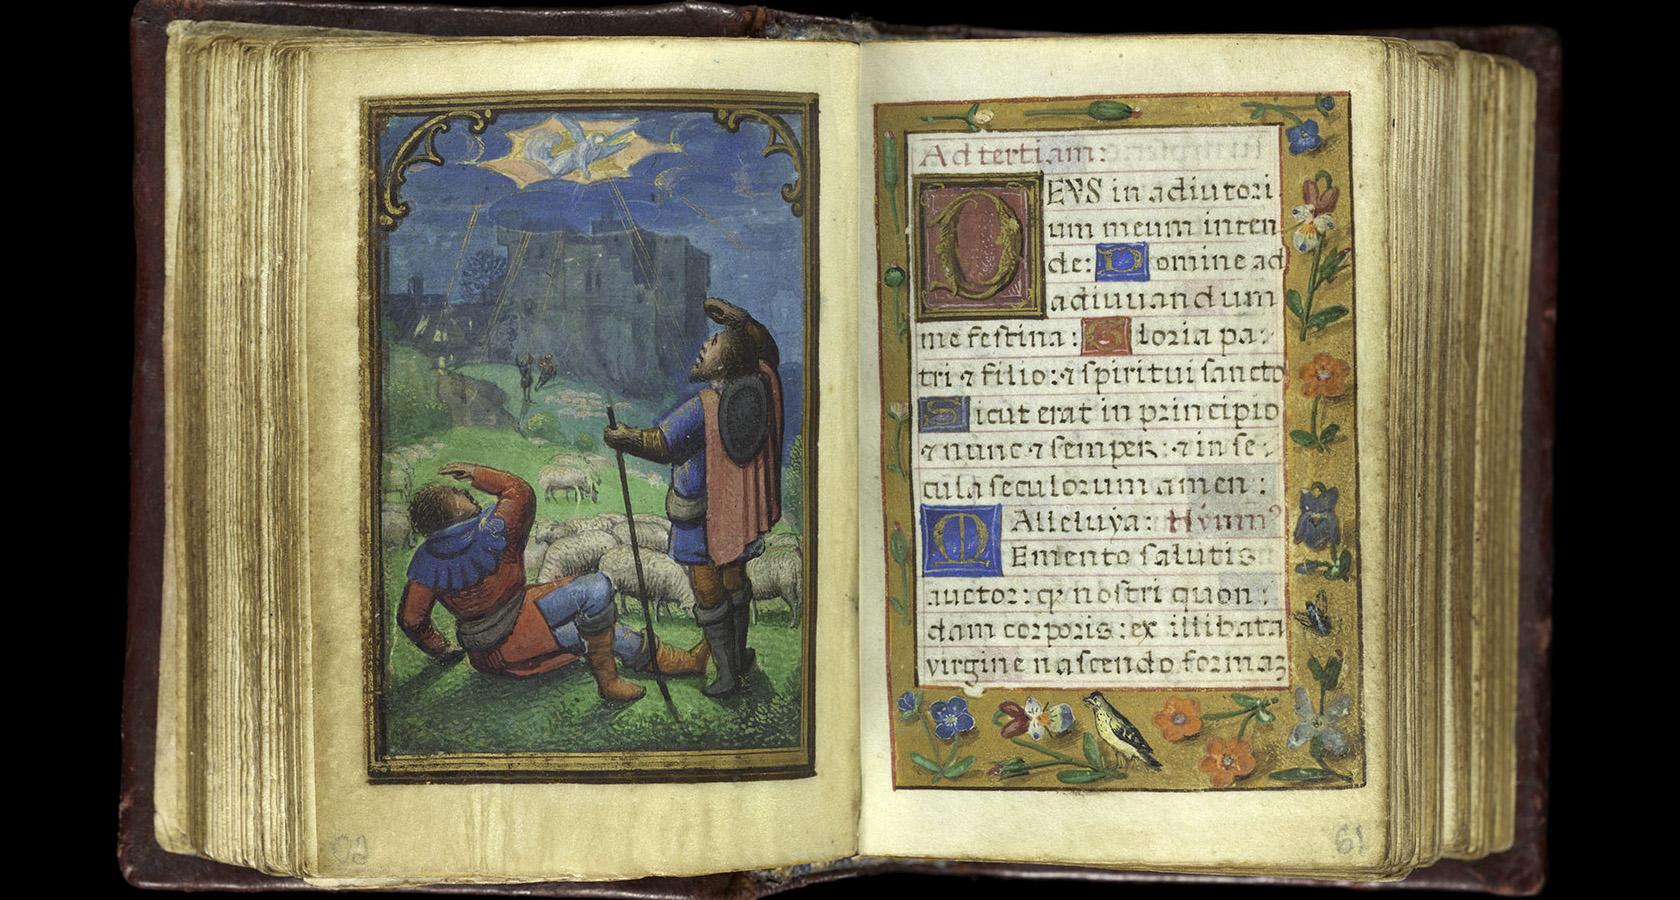 Ad tertiam:
DEVS in adiutori
um meum inten
de: Domine ad
adiuuandum
me festina: Gloria pa:
tri ⁊ filio: ⁊ spiritui sancto
Sicut erat in principio
⁊ nunc ⁊ semper: ⁊ in se:
cula seculorum amen:
Alleluya: Hymnꝰ
Memento salutis
auctor: qꝫ nostri quon:
dam corporis: ex illibata
virgine nascendo formaꝫ
61